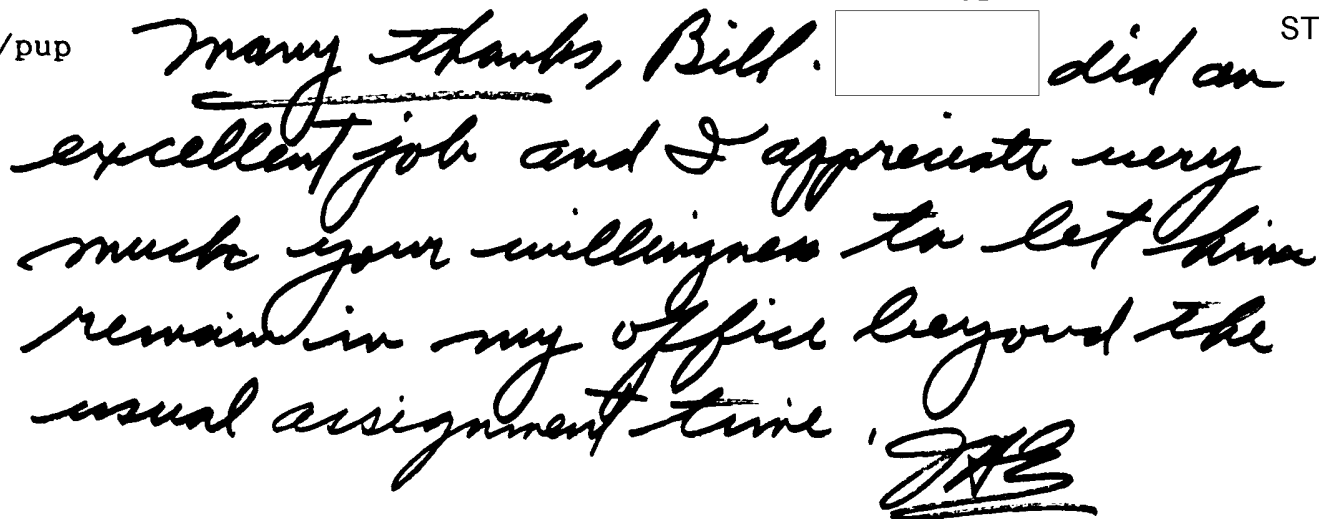 /pup Many thanks, Bill. did an ST
excellent job and I appreciate very
much your willingness to let him
remain in my office beyond the
usual assignment time.
JHE